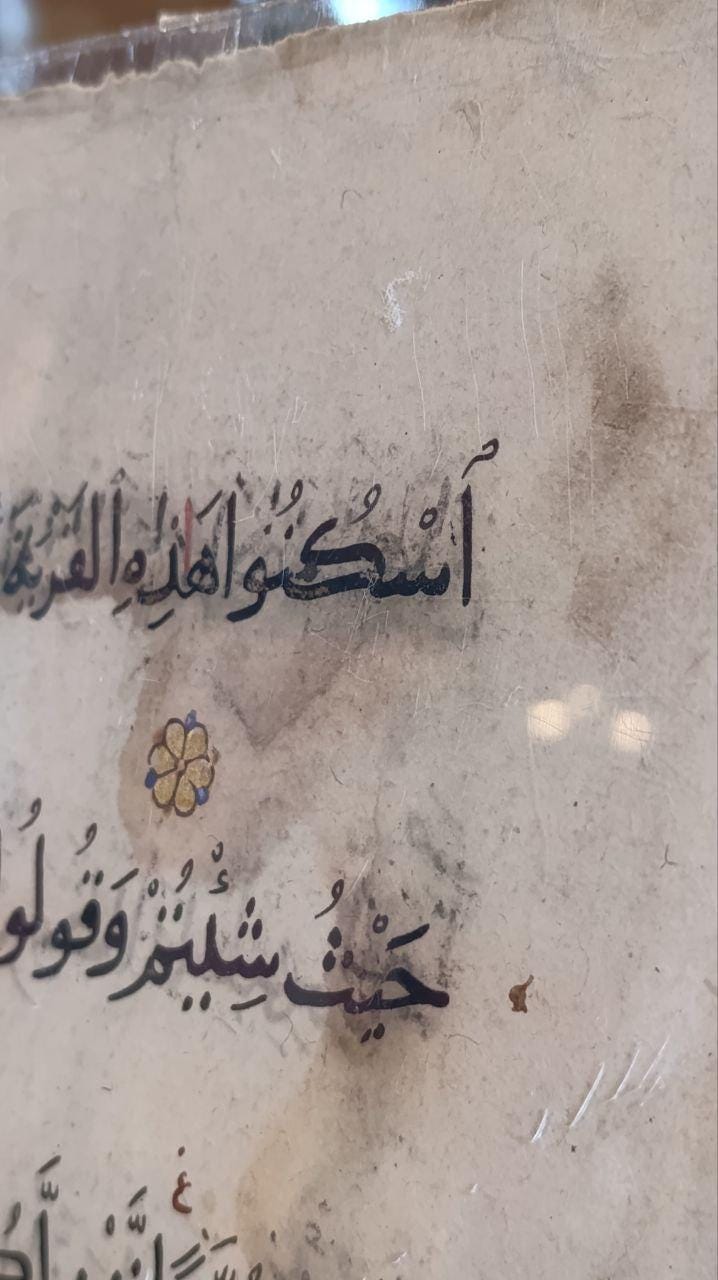 ٱسْكُنُوا هَٰذِهِ ٱلْقَرْيَةَ
حَيْثُ شِئْتُمْ وَقُولُوا
غ